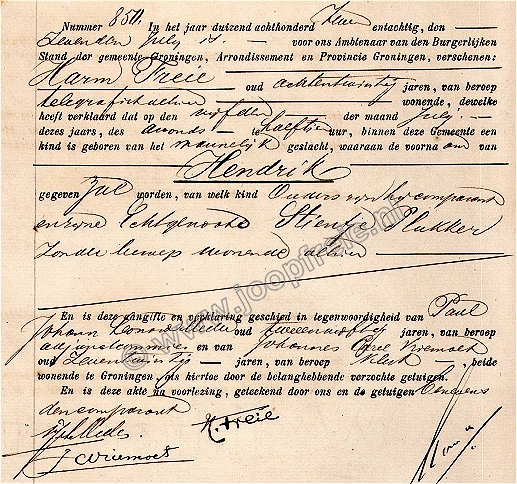 Nummer 850. In het jaar duizend achthonderd twee entachtig, den
zevenden July is voor ons Ambtenaar van den Burgerlijken
Stand der gemeente Groningen, Arrondissement en Provincie Groningen, verschenen:
Harm Freie
oud achtentwintig jaren, van beroep
telegrafist alhier wonende, dewelke
heeft verklaard dat op den vijfden der maand July
dezes jaars, des avonds te half tien uur, binnen deze Gemeente een
kind is geboren van het mannelijk geslacht, waaraan de voornaam van
Hendrik
gegeven zal worden, van welk kind Ouders zijn hij comparant
en zijne Echtgenoote Stientje Plukker
zonder beroep wonende alhier
©www.joopfreie.nl
En is deze aangifte en verklaring geschied in tegenwoordigheid van Paul
Johann oud tweeenvijftig jaren, van beroep
en van Johannes Wiemoet
oud zevenentwintig jaren, van beroep klerk, beide
wonende te Groningen, als hiertoe door de belanghebbende verzochte getuigen.
En is deze akte na voorlezing, geteekend door ons en de getuigen benevens
den comparant
H. Freie